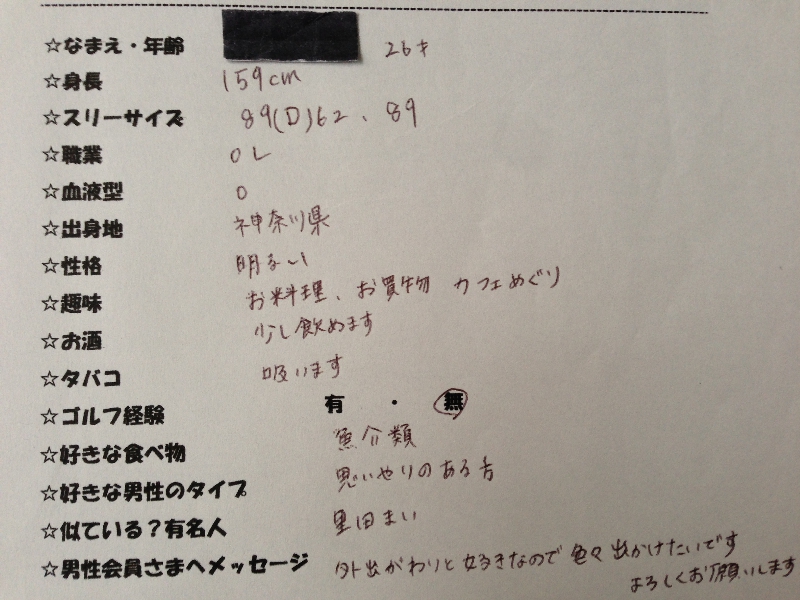 ☆なまえ・年齢 26才
☆身長 159cm
☆スリーサイズ 89(D)62、89
☆職業 OL
☆血液型 O
☆出身地 神奈川県
☆性格 明るい
☆趣味 お料理、お買物 カフェめぐり
☆お酒 少し飲めます
☆タバコ 吸います
☆ゴルフ経験 有・無
☆好きな食べ物 魚介類
☆好きな男性のタイプ 思いやりのある方
☆似ている？有名人 里田まい
☆男性会員さまへメッセージ 外出がわりと好きなので色々出かけたいです
よろしくお願いします